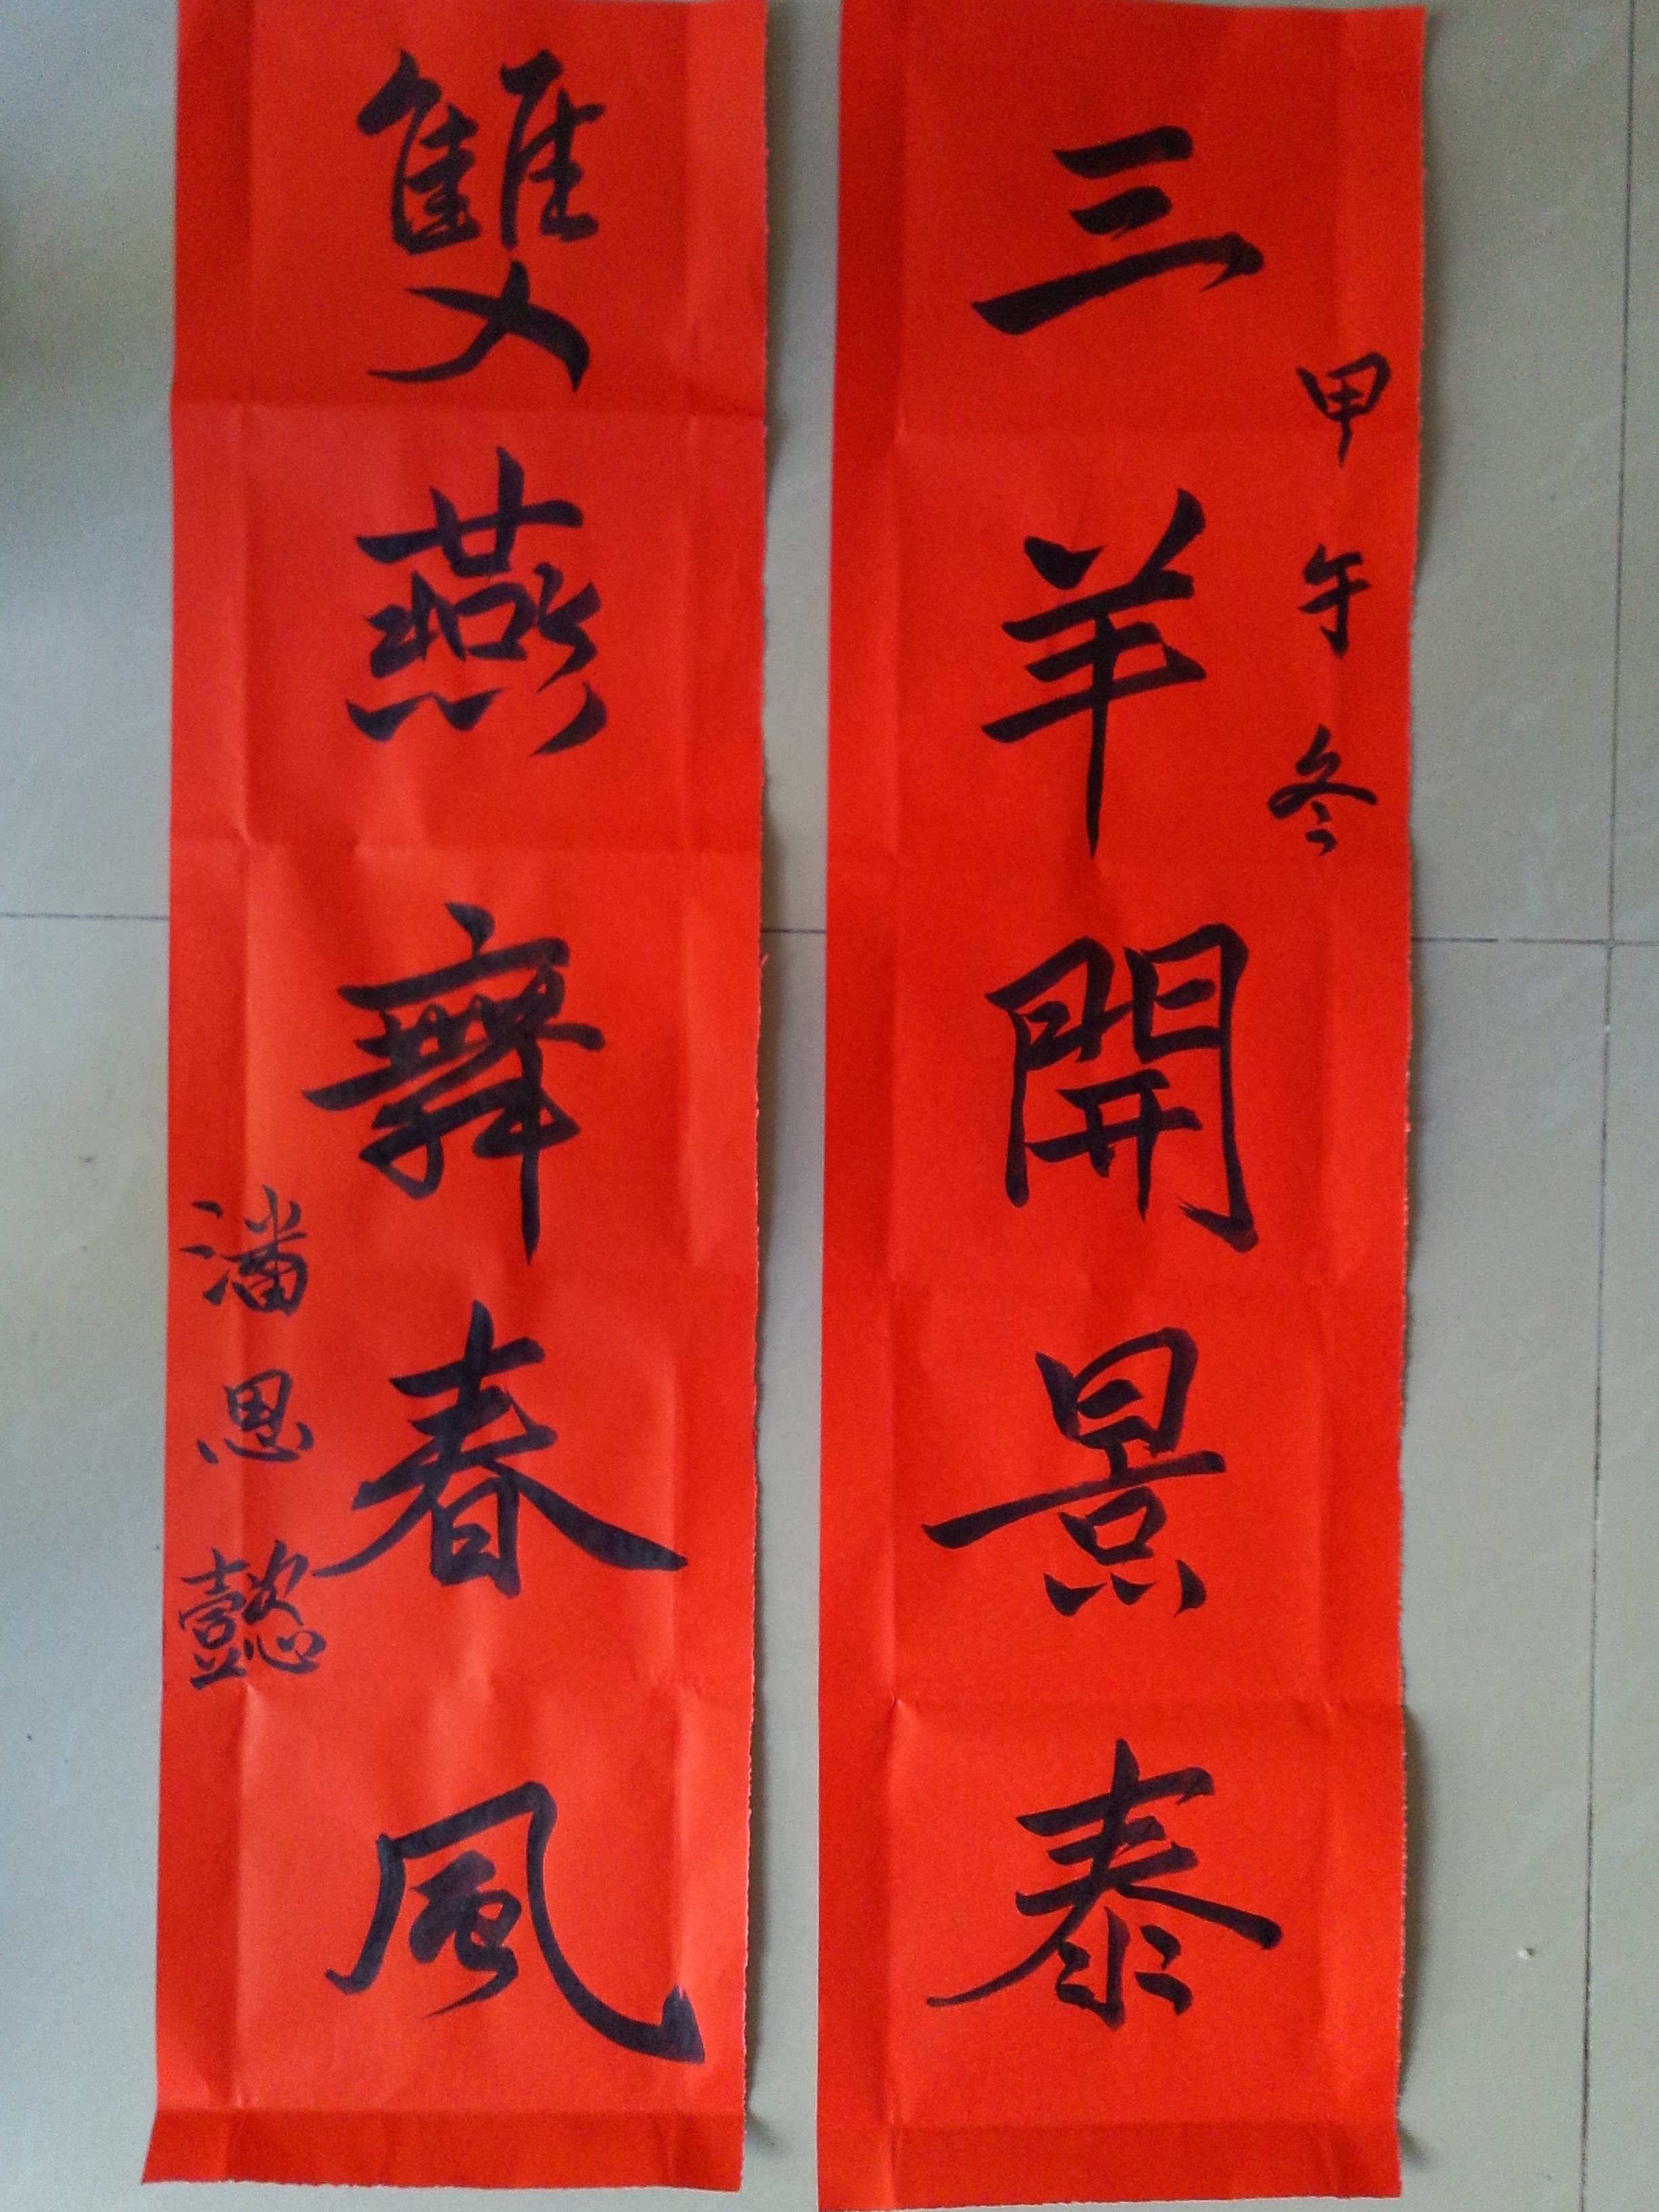 三羊開景泰
甲午冬
雙燕舞春風
潘思懿